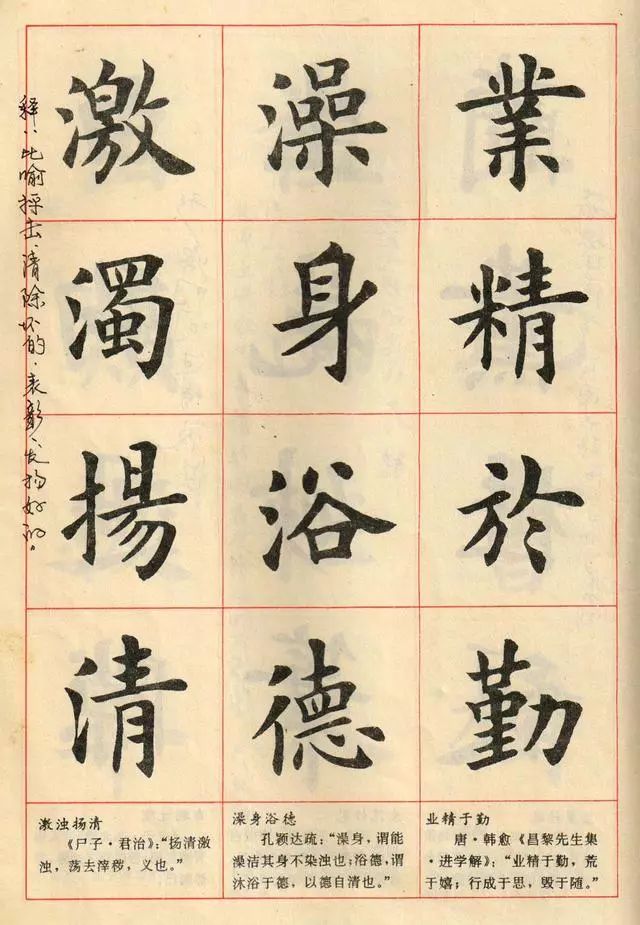 業精於勤
澡身浴德
激濁揚清
释：比喻抨击、清除坏的，表彰、发扬好的。
激浊扬清
《尸子·君治》：“扬清激
浊，荡去滓秽，义也。”
澡身浴德
孔颖达疏：“澡身，谓能
澡洁其身不染浊也；浴德，谓
沐浴于德，以德自清也。”
业精于勤
唐·韩愈《昌黎先生集
·进学解》：“业精于勤，荒
于嬉；行成于思，毁于随。”